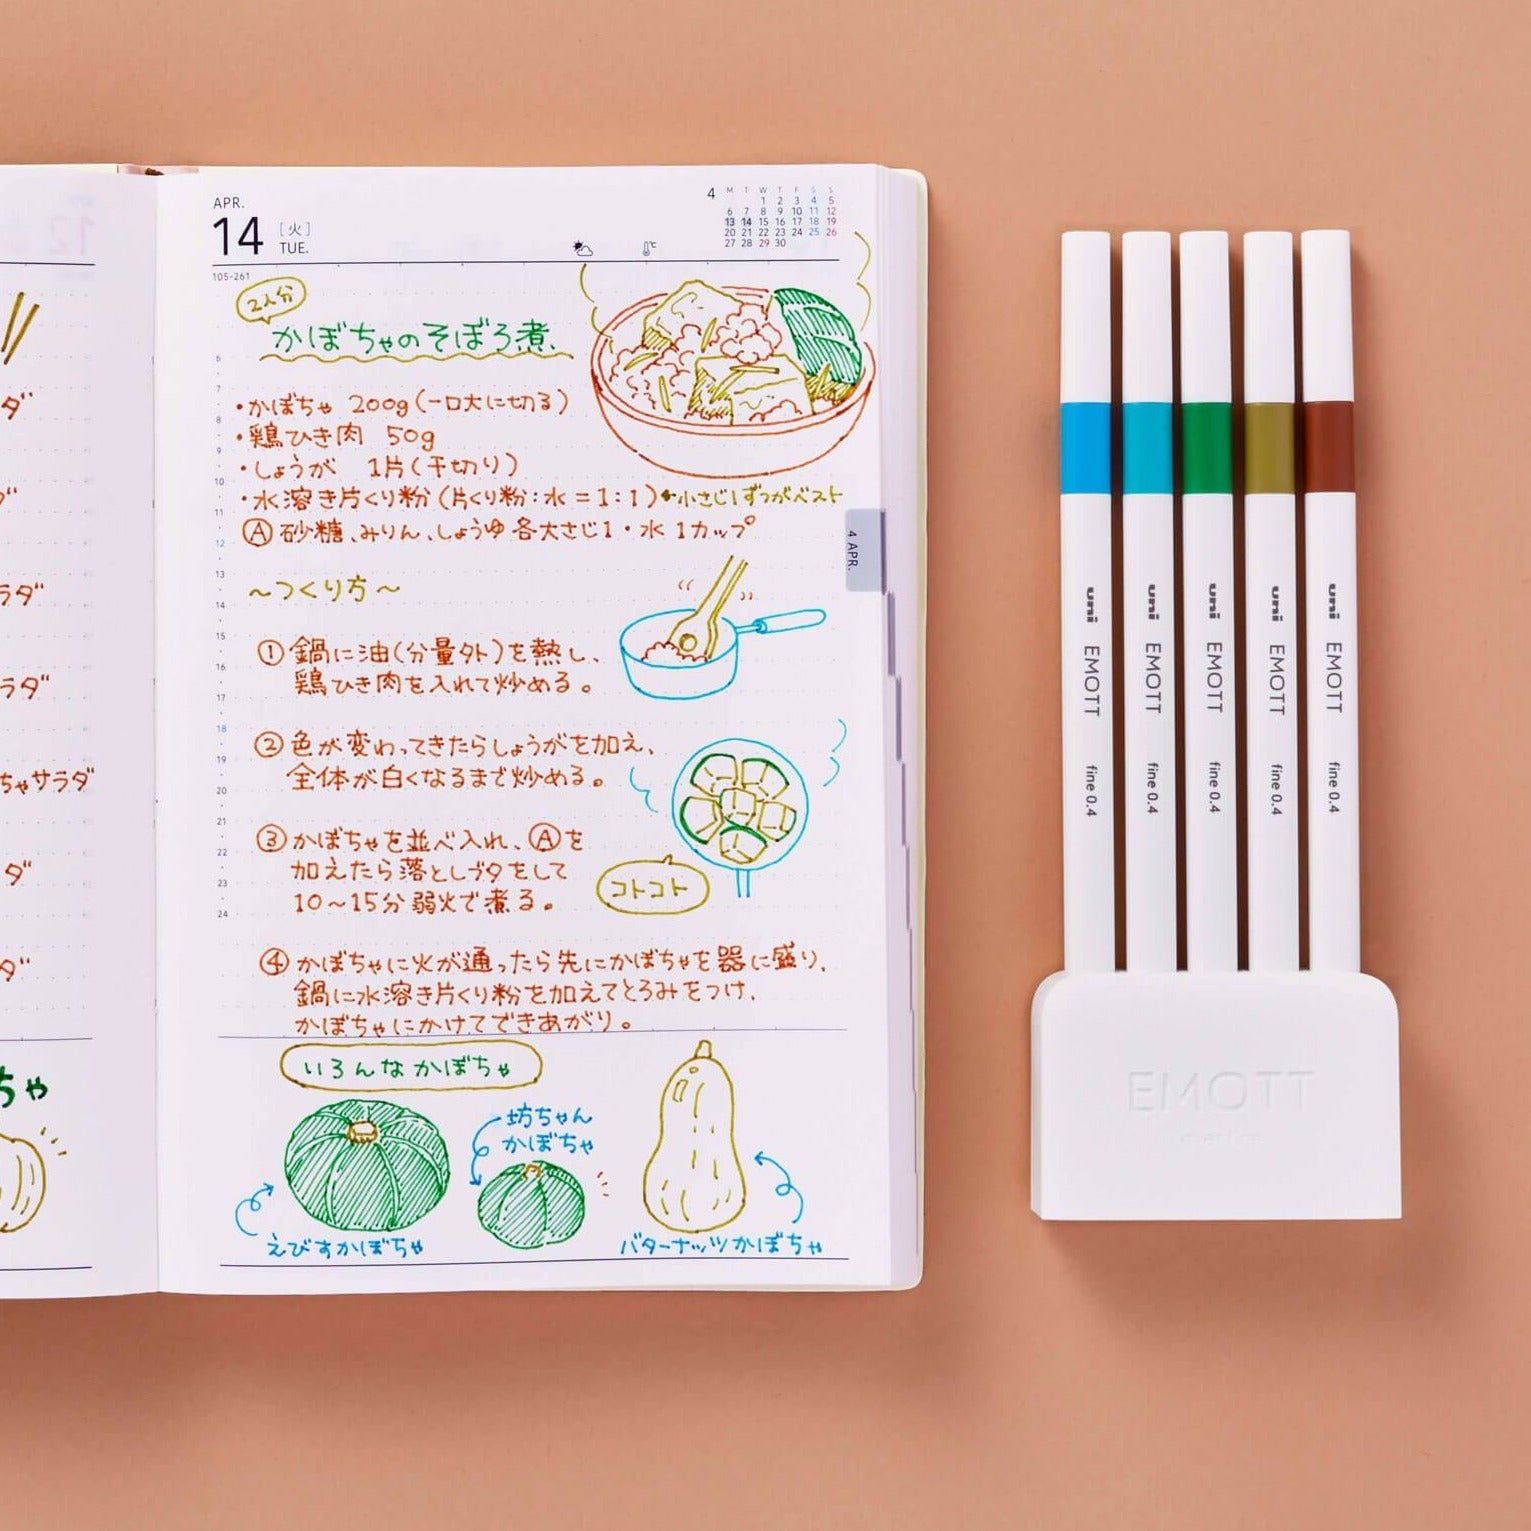 APR.
14
[火]
TUE.
4
M T W T F S S
1 2 3 4 5
6 7 8 9 10 11 12
13 14 15 16 17 18 19
20 21 22 23 24 25 26
27 28 29 30
105-261
2人分
かぼちゃのそぼろ煮、
・かぼちゃ 200g(一口大に切る)
・鶏ひき肉 50g
・しょうが 1片(千切り)
・水溶き片くり粉(片くり粉:水=1:1)←小さじ1ずつがベスト
Ⓐ砂糖、みりん、しょうゆ各大さじ1・水 1カップ
〜つくり方〜
①鍋に油(分量外)を熱し、
鶏ひき肉を入れて炒める。
②色が変わってきたらしょうがを加え、
全体が白くなるまで炒める。
③かぼちゃを並べ入れ、Ⓐを
加えたら落としブタをして
10〜15分弱火で煮る。
コトコト
④かぼちゃに火が通ったら先にかぼちゃを器に盛り、
鍋に水溶き片くり粉を加えてとろみをつけ、
かぼちゃにかけてできあがり。
6
7
8
9
10
11
12
13
14
15
16
17
18
19
20
21
22
23
24
4 APR.
いろんなかぼちゃ
坊ちゃん
かぼちゃ
えびすかぼちゃ
バターナッツかぼちゃ
12
ダ"
ラダ"
ラダ"
ちゃサラダ"
ダ"
ダ"
ちゃ
uni EMOTT fine 0.4
uni EMOTT fine 0.4
uni EMOTT fine 0.4
uni EMOTT fine 0.4
uni EMOTT fine 0.4
EMOTT